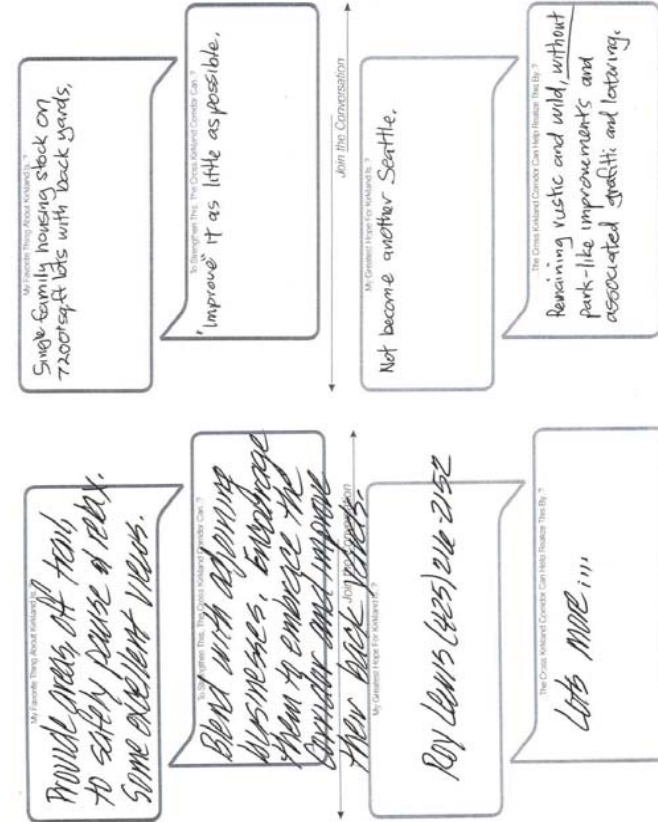 My Favorite Thing About Kirkland Is..?
Single family housing stock on
7200+sq.ft lots with back yards.
To Strengthen This, The Cross Kirkland Corridor Can..?
"Improve" it as little as possible.
Join the Conversation
My Greatest Hope For Kirkland Is..?
Not become another Seattle.
The Cross Kirkland Corridor Can Help Realize This By..?
Remaining rustic and wild, without
park-like improvements and
associated grafitti and loitering.
My Favorite Thing About Kirkland Is..?
Provide areas, off trail,
to safely pause & relax.
Some excellent views.
To Strengthen This, The Cross Kirkland Corridor Can..?
Blend with adjoining
businesses. Encourage
them to embrace the
corridor and improve
their back
Join the Conversation
My Greatest Hope For Kirkland Is..?
Roy Lewis (425) 216-2152
The Cross Kirkland Corridor Can Help Realize This By..?
Lots more....